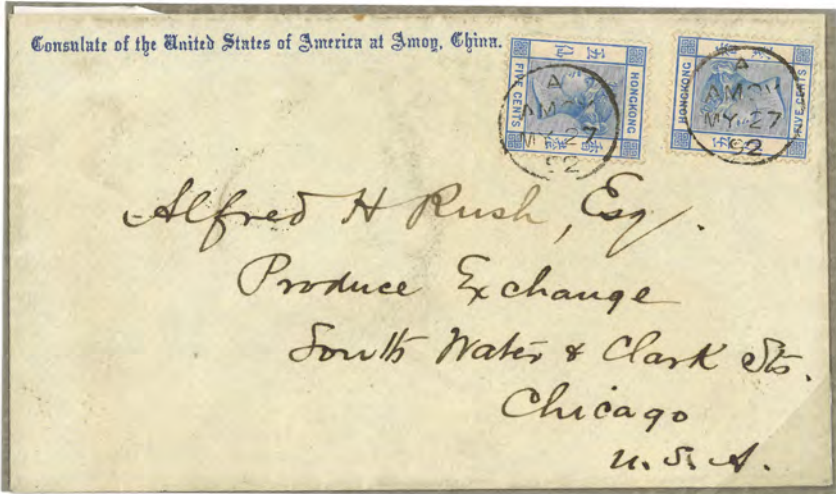 Consulate of the United States of America at Amoy, China.
FIVE CENTS
HONGKONG
A
AMOY
MY 27
92
HONGKONG
FIVE CENTS
A
AMOY
MY 27
92
Alfred H Rush, Esq.
Produce Exchange
South Water & Clark Sts.
Chicago
U.S.A.